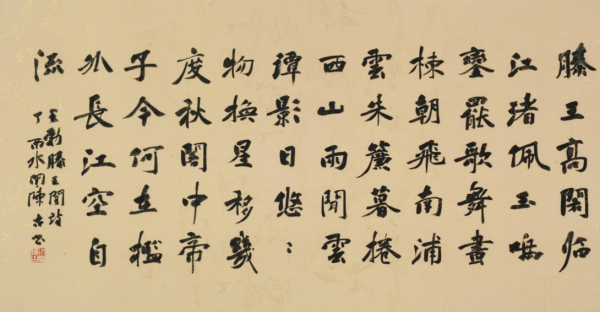 滕王高閣临
江渚佩玉鳴
鑾罷歌舞畫
棟朝飛南浦
雲朱簾暮捲
西山雨閒雲
潭影日悠〻
物換星移幾
度秋閣中帝
子今何在檻
外長江空自
流
王勃滕王閣詩